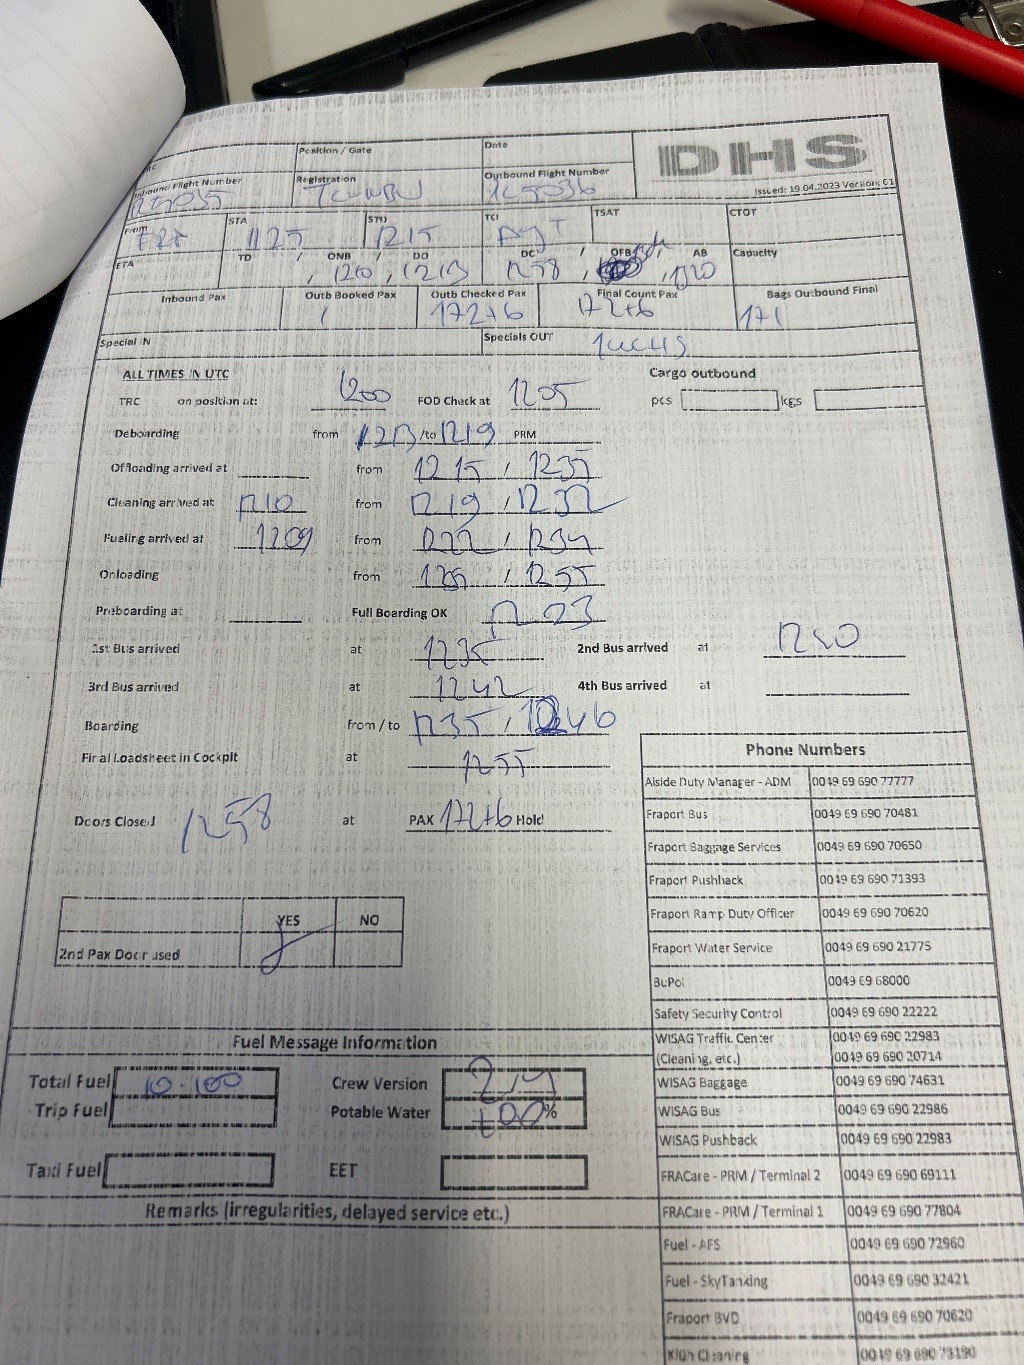 Position / Gate Date DHS
Inbound Flight Number Registration Outbound Flight Number Issued: 19.04.2023 Version: 01
XC5036
From STA STD TCI TSAT CTOT
1125 1215 AYT
ETA TD / ONB / DO DC / OFB AB Capacity
, 1200 , 1213 1258 , , 1320
Inbound Pax Outb Booked Pax Outb Checked Pax Final Count Pax Bags Outbound Final
/ 172+6 172+6 171
Special IN Specials OUT
ALL TIMES IN UTC Cargo outbound
TRC on position at: 1200 FOD Check at 1205 pcs kgs
Deboarding from 1213 /to 1219 PRM
Offloading arrived at from 1215 / 1235
Cleaning arrived at 1210 from 1219 / 1232
Fueling arrived at 1209 from 1222 / 1234
Onloading from / 1255
Preboarding at Full Boarding OK
1st Bus arrived at 1235 2nd Bus arrived at
3rd Bus arrived at 1242 4th Bus arrived at
Boarding from / to 1235 / 1246
Final Loadsheet in Cockpit at 1255
Doors Closed 1258 at PAX 172+6 Hold
YES NO
2nd Pax Door used
Phone Numbers
Alside Duty Manager - ADM 0049 69 690 77777
Fraport Bus 0049 69 690 70481
Fraport Baggage Services 0049 69 690 70650
Fraport Pushback 0049 69 690 71393
Fraport Ramp Duty Officer 0049 69 690 70620
Fraport Water Service 0049 69 690 21775
BuPol 0049 69 68000
Safety Security Control 0049 69 690 22222
WISAG Traffic Center 0049 69 690 22983
(Cleaning, etc.) 0049 69 690 20714
WISAG Baggage 0049 69 690 74631
WISAG Bus 0049 69 690 22986
WISAG Pushback 0049 69 690 22983
FRACare - PRM / Terminal 2 0049 69 690 69111
FRACare - PRM / Terminal 1 0049 69 690 77804
Fuel - AFS 0049 69 690 72960
Fuel - SkyTanking 0049 69 690 32421
Fraport BVD 0049 69 690 70620
Klüh Cleaning 0049 69 690 73190
Fuel Message Information
Total Fuel 10.100 Crew Version 2/4
Trip Fuel Potable Water 100%
Taxi Fuel EET
Remarks (irregularities, delayed service etc.)